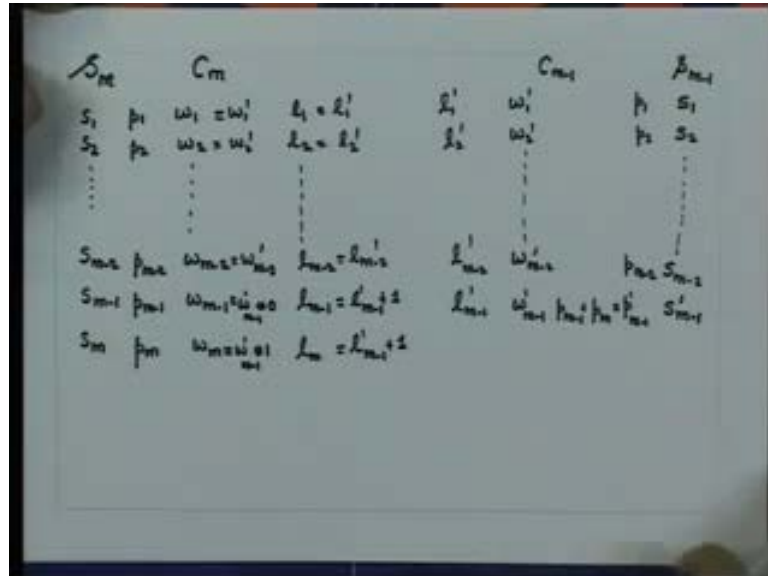 S_m C_m C_{m-1} S_{m-1}
s_1 p_1 ω_1 = ω_1' l_1 = l_1' l_1' ω_1' p_1 s_1
s_2 p_2 ω_2 = ω_2' l_2 = l_2' l_2' ω_2' p_2 s_2
s_{m-2} p_{m-2} ω_{m-2} = ω'_{m-2} l_{m-2} = l'_{m-2} l'_{m-2} ω'_{m-2} p_{m-2} s_{m-2}
s_{m-1} p_{m-1} ω_{m-1} = ω'_{m-1} ⊕ 0 l_{m-1} = l'_{m-1} + 1 l'_{m-1} ω'_{m-1} p_{m-1} + p_m = p'_{m-1} s'_{m-1}
s_m p_m ω_m = ω'_{m-1} ⊕ 1 l_m = l'_{m-1} + 1